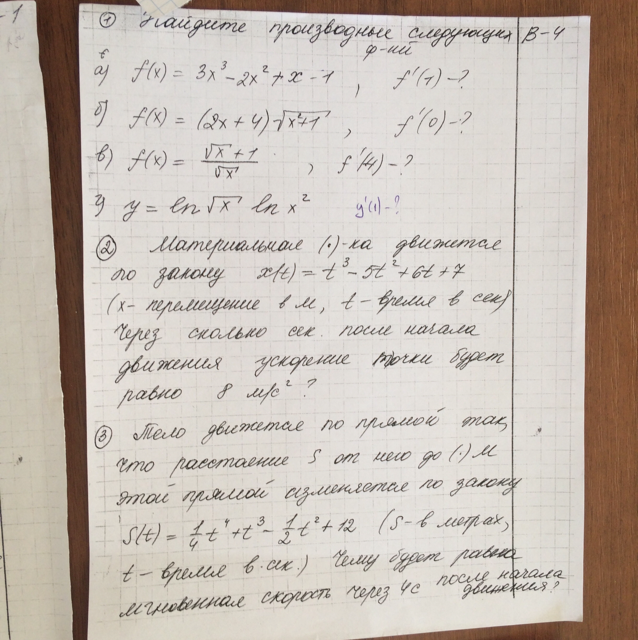 -1
① Найдите производные следующих В-4
ф-ий
а) f(x) = 3x³ - 2x² + x - 1 , f'(1) - ?
б) f(x) = (2x + 4)√(x²+1) , f'(0) - ?
в) f(x) = (√x + 1)/√x , f'(4) - ?
г) y = ln √x ln x² y'(1) - ?
② Материальная (·)-ка движется
по закону x(t) = t³ - 5t² + 6t + 7
(x - перемещение в м, t - время в сек)
Через сколько сек. после начала
движения ускорение точки будет
равно 8 м/с² ?
③ Тело движется по прямой так,
что расстояние S от него до (·) М
этой прямой изменяется по закону
S(t) = 1/4 t⁴ + t³ - 1/2 t² + 12 (S - в метрах,
t - время в сек.) Чему будет равна
мгновенная скорость через 4с после начала
движения?